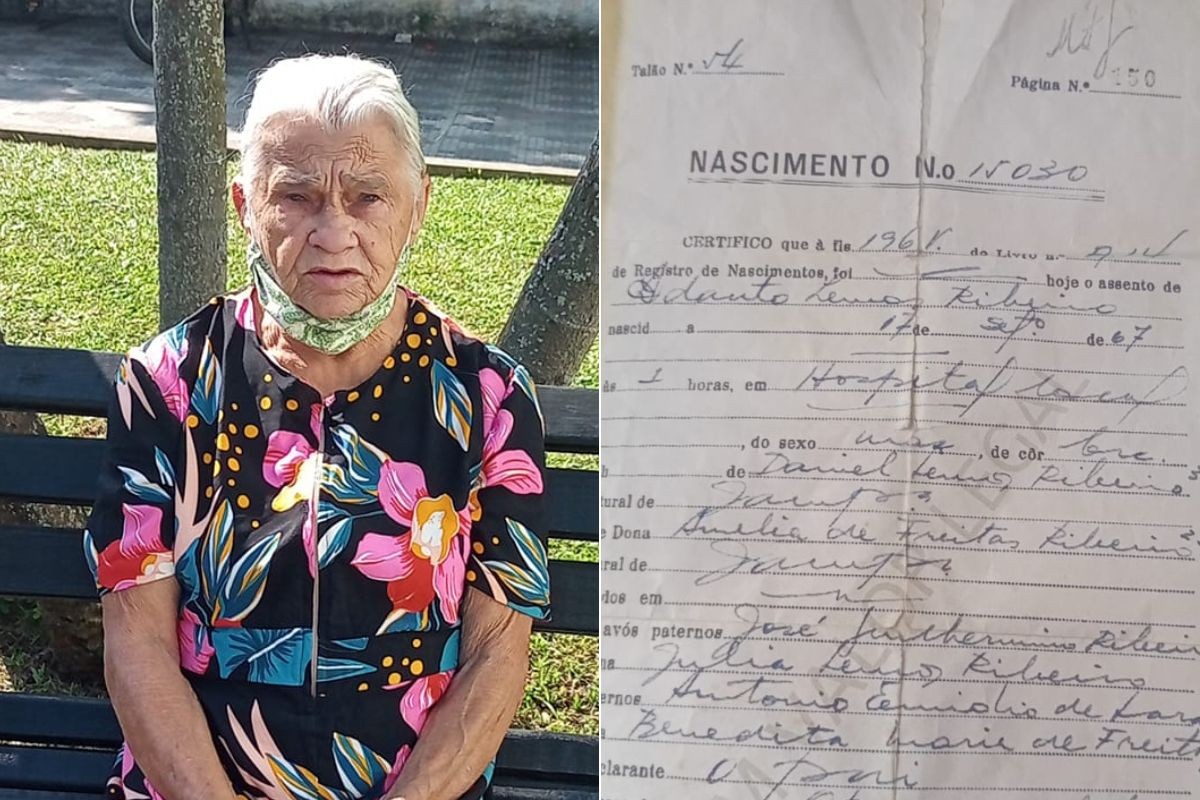 Talão N.º 54
Página N.º 150
NASCIMENTO N.o 15030
CERTIFICO que à fls. 196 V. do Livro n.º
de Registro de Nascimentos, foi hoje o assento de
Lemos Ribeiro
nascid a 17 de setº de 67
às 1 horas, em Hospital local
, do sexo mas , de côr bra
de Daniel Lemos Ribeiro
tural de
e Dona Amelia de Freitas Ribeiro
ral de
dos em
avós paternos José Guilhermino Ribeir
na Julia Lemos Ribeiro
ernos Antonio Emidio de
Benedita maria de Freita
clarante O Pai